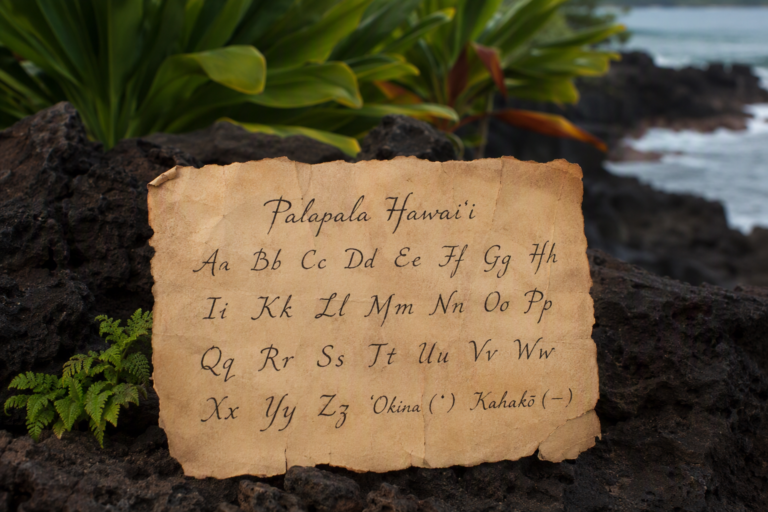 Palapala Hawaiʻi
Aa Bb Cc Dd Ee Ff Gg Hh
Ii Kk Ll Mm Nn Oo Pp
Qq Rr Ss Tt Uu Vv Ww
Xx Yy Zz ʻOkina (ʻ) Kahakō (–)